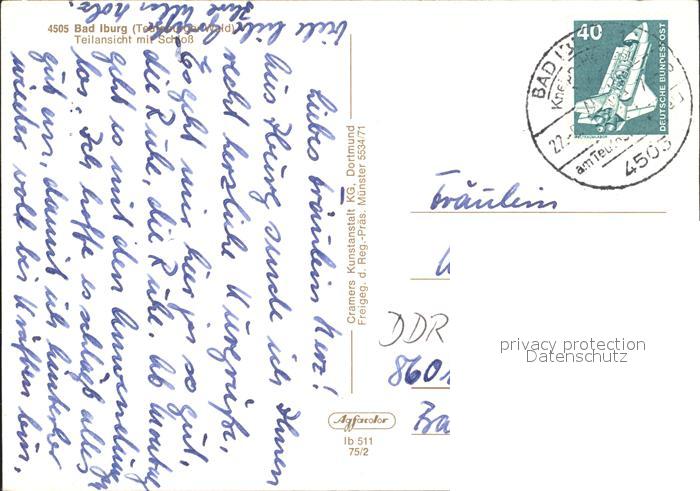 4505 Bad Iburg (Teutoburger Wald)
Teilansicht mit Schloß
Liebes Fräulein Herz!
Aus Iburg sende ich Ihnen
recht herzliche Kurgrüße,
Es geht mir hier ja so gut,
die Ruhe, die Ruhe. Ab Montag
geht es mit den Anwendungen
los. Ich hoffe es schlägt alles
gut an, damit ich hinterher
wieder voll bei Kräften bin.
Viele liebe
Cramers Kunstanstalt KG, Dortmund
Freigeg. d. Reg.-Präs. Münster 5534/71
Agfacolor
Ib 511
75/2
40
DEUTSCHE BUNDESPOST
BAD IB
22.
am Teuto
4505
Fräulein
DDR
8601
Ba
privacy protection
Datenschutz